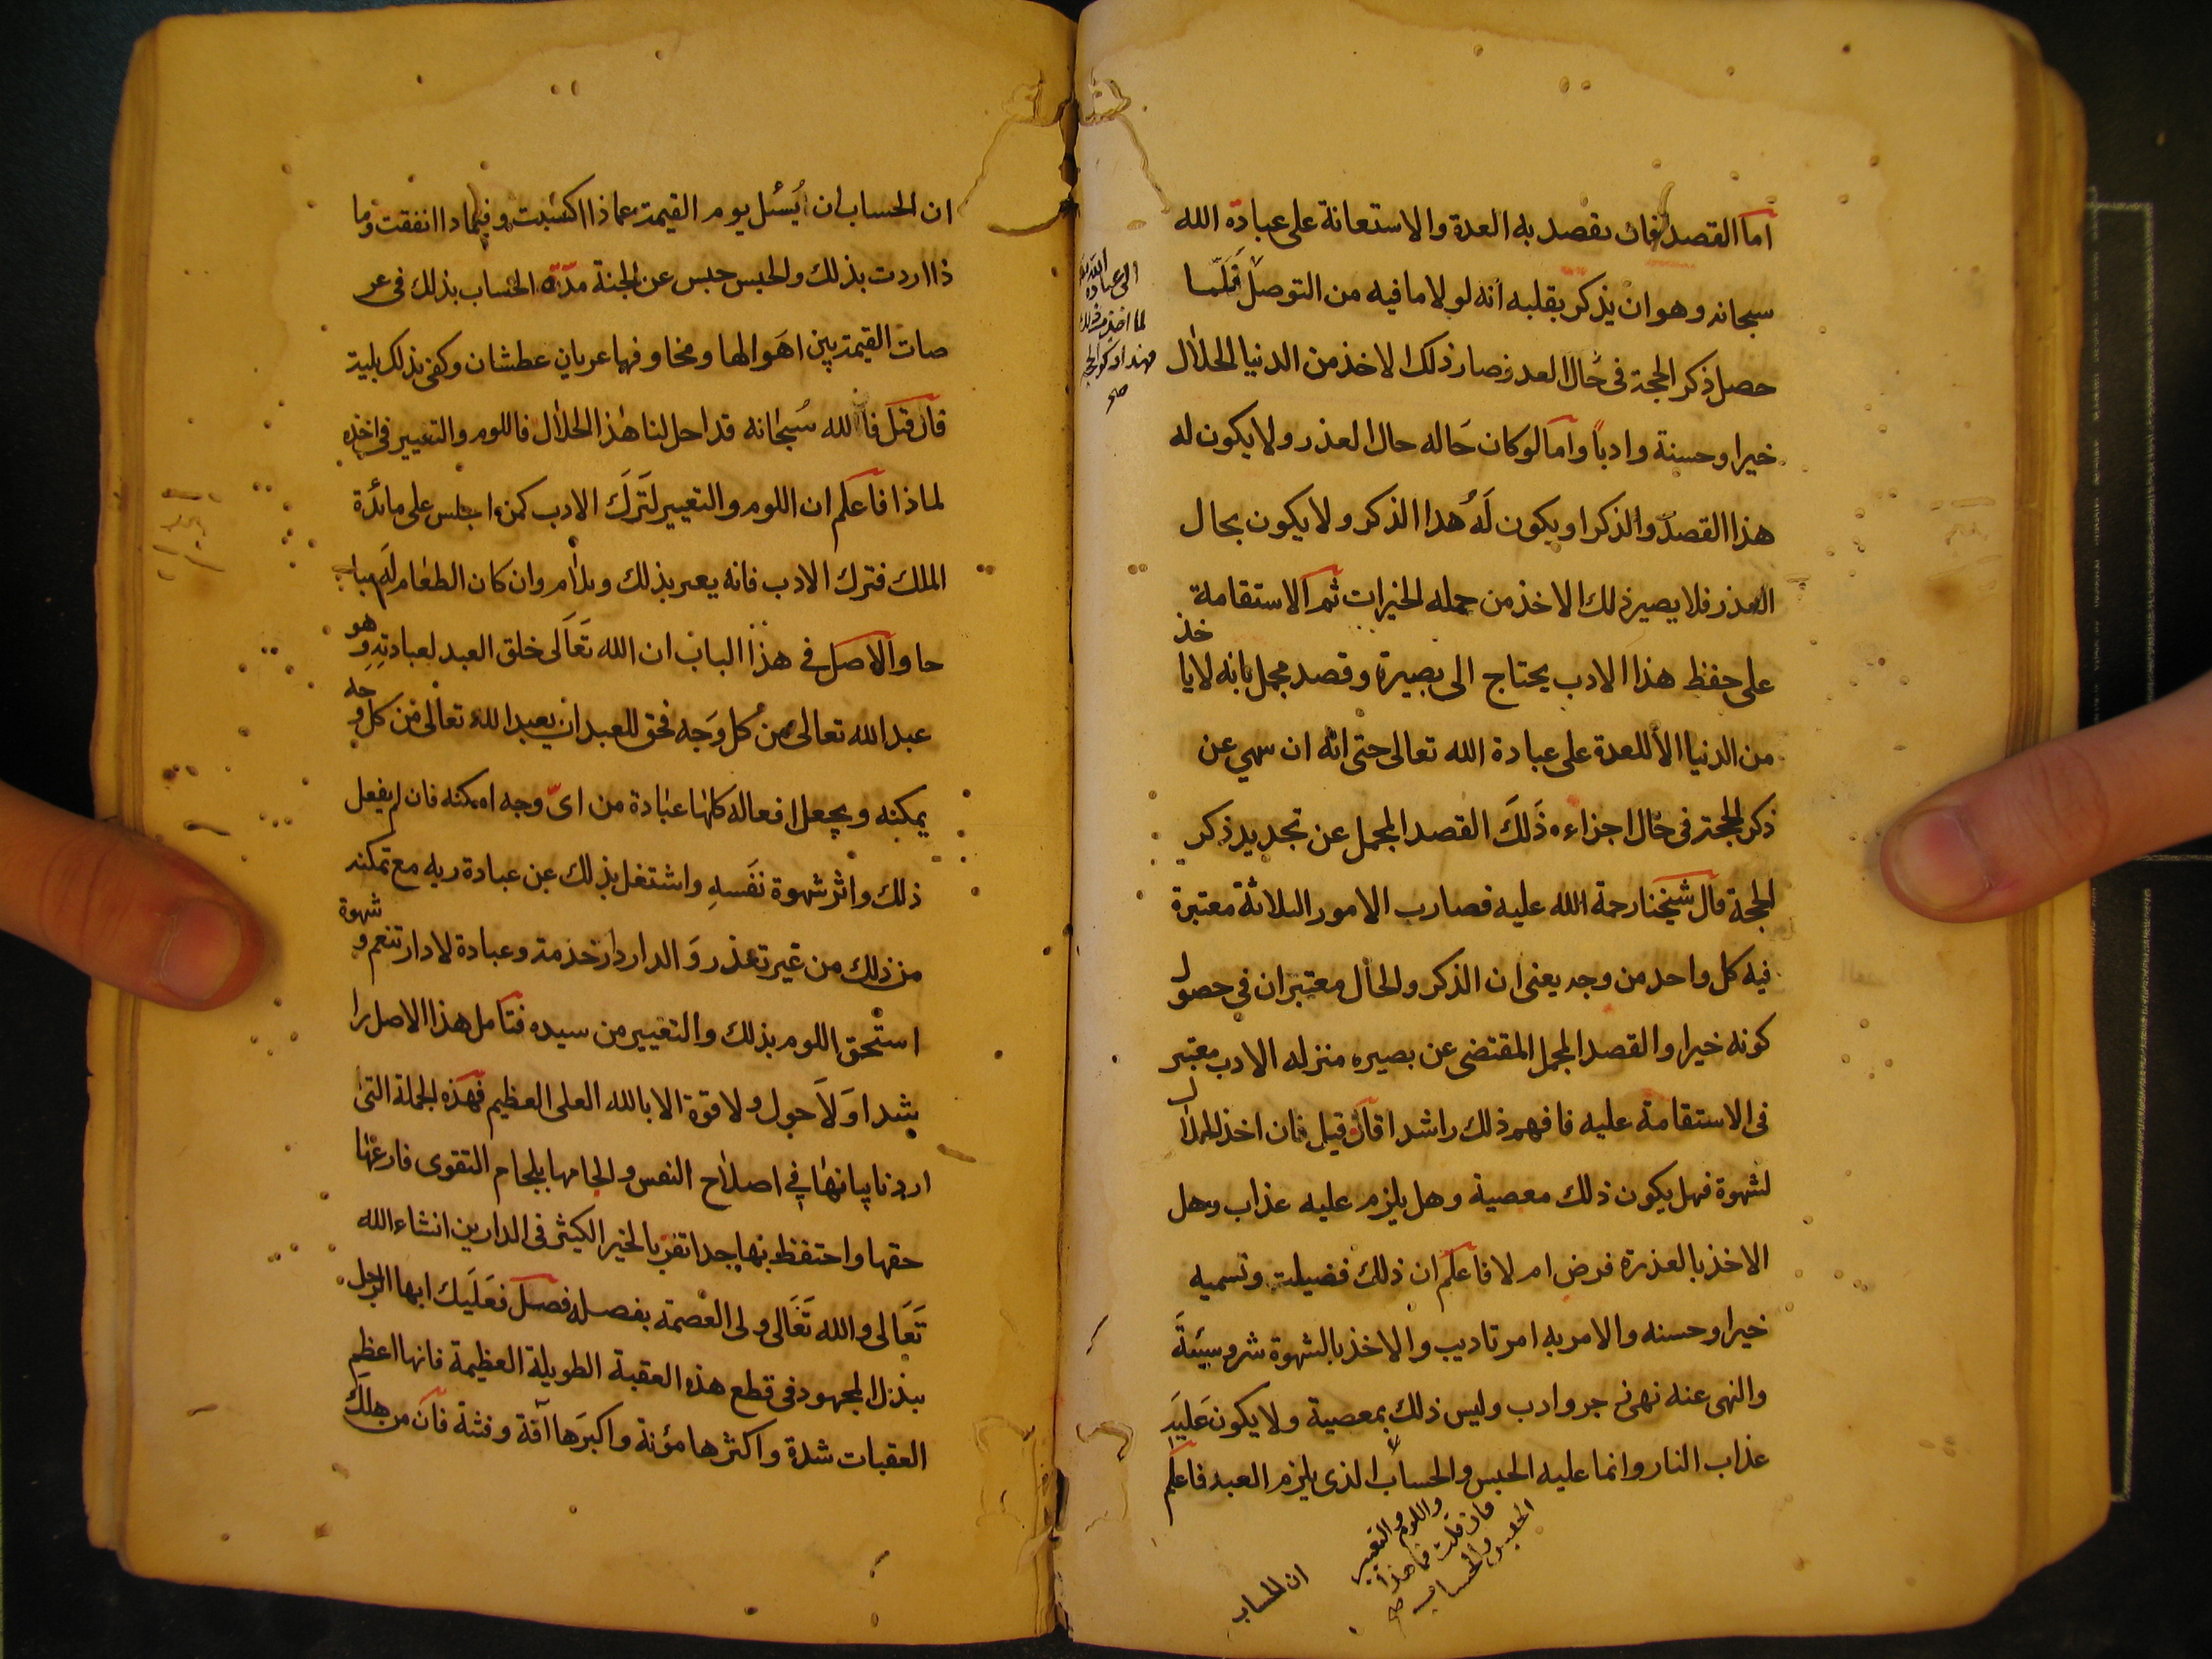 اما القصد فان يقصد به العدة والاستعانة على عبادة الله
سبحانه وهو ان يذكر بقلبه انه لولا ما فيه من التوصل فلما
الى عبادة الله
لما اخذ من ذلك
فهذا ذكر الحجة
صح
حصل ذكر الحجة فى حال العذر فصار ذلك الاخذ من الدنيا الحلال
خيرا وحسنة وادبا واما لو كان حاله حال العذر ولا يكون له
هذا القصد والذكر او يكون له هذا الذكر ولا يكون بحال
العذر فلا يصير ذلك الاخذ من جمله الخيرات ثم الاستقامة
على حفظ هذا الادب يحتاج الى بصيرة وقصد مجمل بانه لا ياخذ
من الدنيا الا للعدة على عبادة الله تعالى حتى انه ان سهي عن
ذكر الحجة فى حال اجزاءه ذلك القصد المجمل عن تجديد ذكر
الحجة قال شيخنا رحمة الله عليه فصارت الامور الثلاثة معتبرة
فيه كل واحد من وجه يعنى ان الذكر والحال معتبران في حصول
كونه خيرا والقصد المجمل المقتضى عن بصيره منزله الادب معتبر
فى الاستقامة عليه فافهم ذلك راشدا فان قيل فان اخذ الحلال
لشهوة فهل يكون ذلك معصية وهل يلزم عليه عذاب وهل
الاخذ بالعذرة فرض ام لا فاعلم ان ذلك فضيلة وتسميه
خيرا وحسنه والامر به امر تاديب والاخذ بالشهوة شر وسيئة
والنهى عنه نهى زجر وادب وليس ذلك بمعصية ولا يكون عليه
عذاب النار وانما عليه الحبس والحساب الذى يلزم العبد فاعلم
واللوم والتعيير
فان قلت فما هذا
الحبس والحساب صح
ان الحساب
ان الحساب ان يسئل يوم القيمة عماذا اكتسبت وفيماذا انفقت وما
ذا اردت بذلك والحبس حبس عن الجنة مدة الحساب بذلك فى عر
صات القيمة بين اهوالها ومخاوفها عريان عطشان وكفى بذلك بلية
فان قيل فالله سبحانه قد احل لنا هذا الحلال فاللوم والتعيير فى اخذه
لماذا فاعلم ان اللوم والتعيير لترك الادب كمن اجلس على مائدة
الملك فترك الادب فانه يعير بذلك ويلام وان كان الطعام له مبا
حا والاصل في هذا الباب ان الله تعالى خلق العبد لعبادته وهو
عبد الله تعالى من كل وجه فحق للعبد ان يعبد الله تعالى من كل وجه
يمكنه ويجعل افعاله كلها عبادة من اى وجه امكنه فان لم يفعل
ذلك واثر شهوة نفسه واشتغل بذلك عن عبادة ربه مع تمكنه
من ذلك من غير تعذر والدار دار خدمة وعبادة لا دار تنعم وشهوة
استحق اللوم بذلك والتعيير من سيده فتامل هذا الاصل را
شدا ولا حول ولا قوة الا بالله العلى العظيم فهذه الجملة التى
اردنا بيانها في اصلاح النفس والجامها بلجام التقوى فارعها
حقها واحتفظ بها جدا تفز بالخير الكثير فى الدارين انشاء الله
تعالى والله تعالى ولى العصمة بفضله فصل فعليك ايها الرجل
ببذل المجهود فى قطع هذه العقبة الطويلة العظيمة فانها اعظم
العقبات شدة واكثرها مؤنة واكبرها افة وفتنة فان من هلك